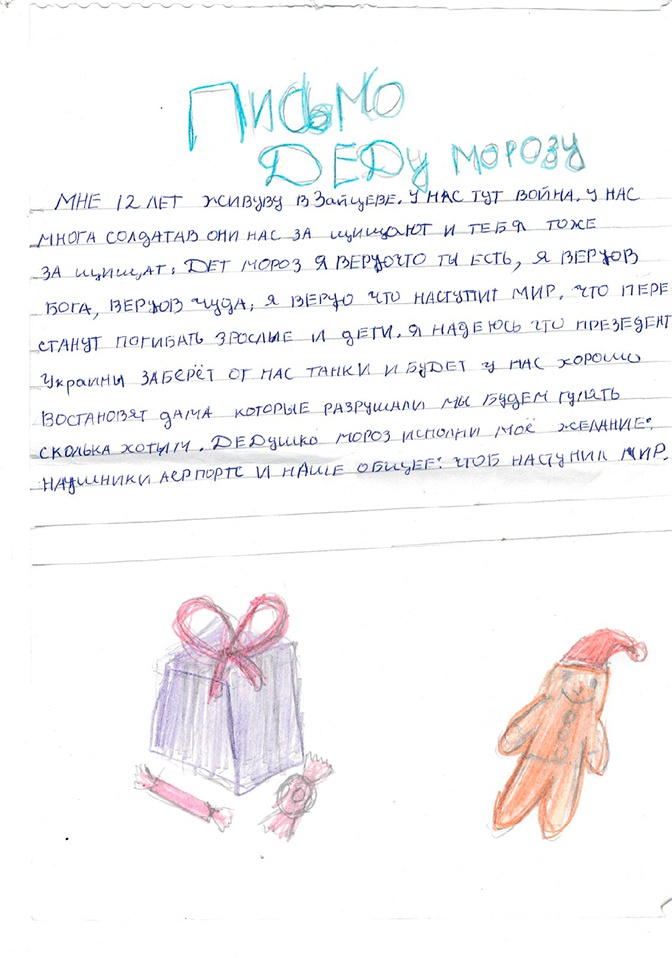 Письмо
Деду морозу
МНЕ 12 ЛЕТ ЖИВУВУ В ЗАЙЦЕВЕ. У НАС ТУТ ВОЙНА. У НАС
МНОГА СОЛДАТАВ ОНИ НАС ЗА ЩИЩАЮТ И ТЕБЯ ТОЖЕ
ЗА ЩИЩАТ. ДЕТ МОРОЗ Я ВЕРУЮ ЧТО ТЫ ЕСТЬ, Я ВЕРУЮ В
БОГА, ВЕРУЮ В ЧУДА, Я ВЕРУЮ ЧТО НАСТУПИТ МИР. ЧТО ПЕРЕ
СТАНУТ ПОГИБАТЬ ЗРОСЛЫЕ И ДЕТИ. Я НАДЕЮСЬ ЧТО ПРЕЗЕДЕНТ
УКРАИНЫ ЗАБЕРЁТ ОТ НАС ТАНКИ И БУДЕТ У НАС ХОРОШО
ВОСТАНОВЯТ ДАМА КОТОРЫЕ РАЗРУШАЛИ МЫ БУДЕМ ГУЛЯТЬ
СКОЛЬКА ХОТИМ. ДЕДУШКО МОРОЗ ИСПОЛНИ МОЁ ЖЕЛАНИЕ:
НАУШНИКИ АЕРПОРТС И НАШЕ ОБЩЕЕ: ЧТОБ НАСТУПИЛ МИР.